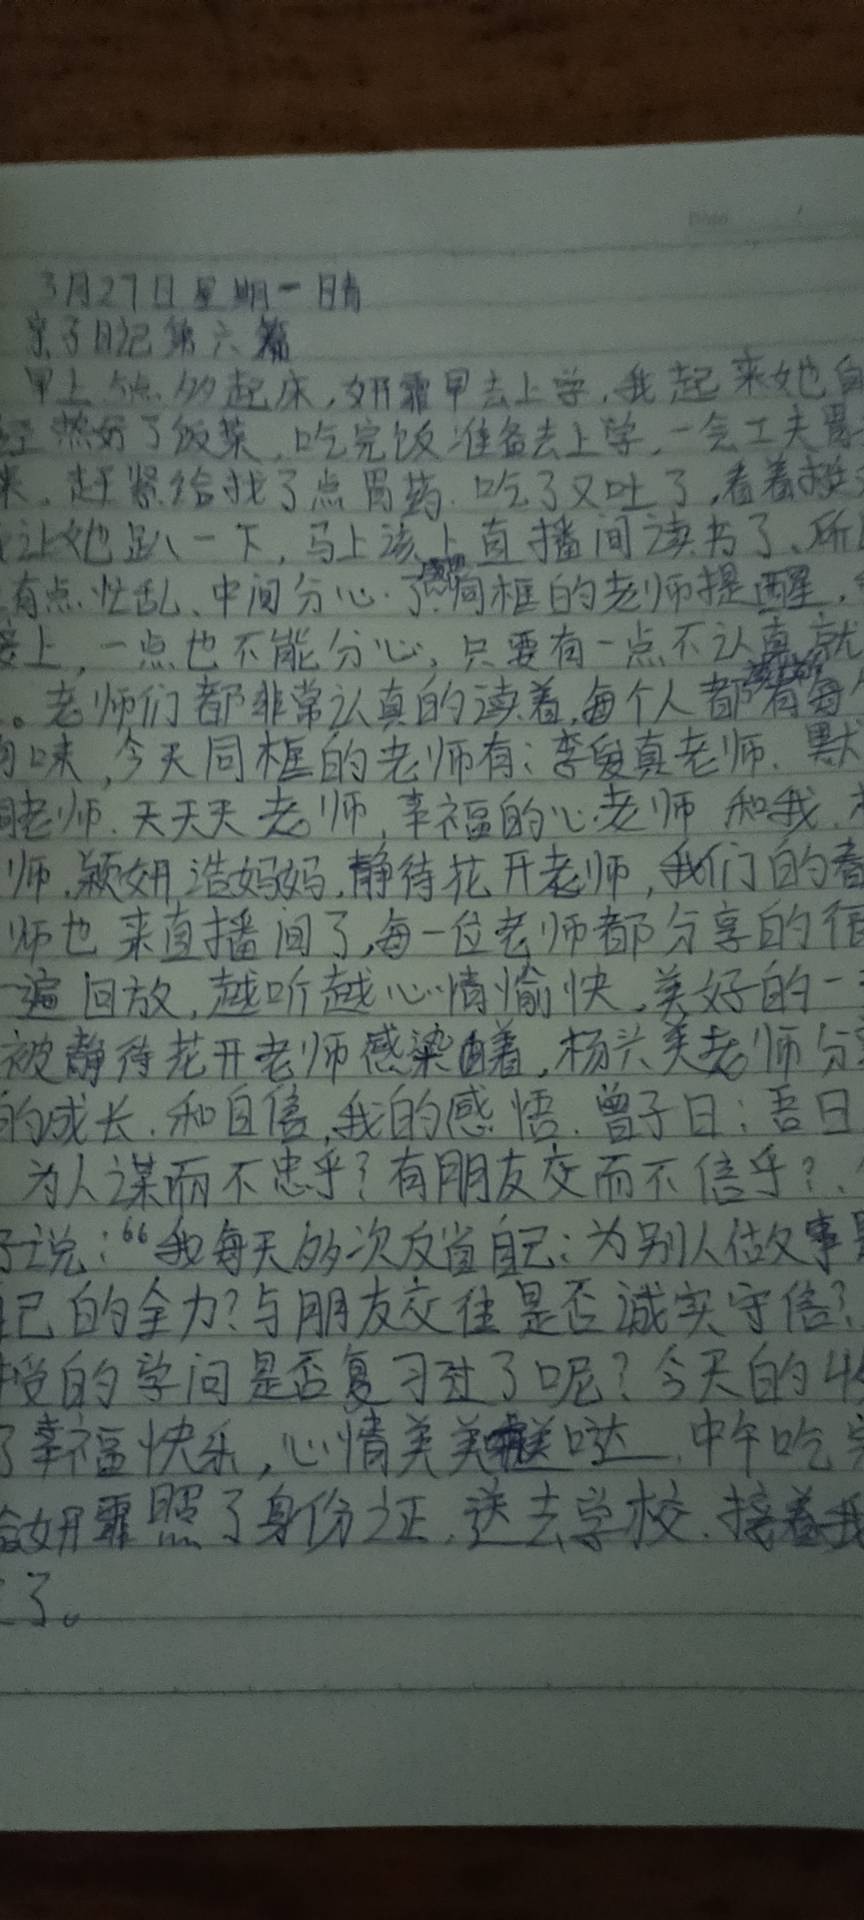 3月27日星期一晴
亲子日记第六篇
早上 点多起床,妍霏早去上学,我起来她自
热好了饭菜,吃完饭准备去上学,一会工夫胃
来,赶紧给找了点胃药.吃了又吐了,看着挺
让她趴一下,马上该上直播间读书了、所
有点忙乱、中间分心.了.感谢同框的老师提醒,
接上,一点也不能分心,只要有一点不认真就
。老师们都非常认真的读着,每个人都有每
味,今天同框的老师有:李爱真老师.默
老师.天天天老师,幸福的心老师 和我.
师.颖妍浩妈妈.静待花开老师,我们的春
师也来直播间了,每一位老师都分享的很
一遍回放,越听越心情愉快,美好的一
被静待花开老师感染着,杨兴美老师分享
的成长.和自信,我的感悟.曾子曰:吾日
为人谋而不忠乎?有朋友交而不信乎?、
子说:“我每天多次反省自己:为别人做事是
己的全力?与朋友交往是否诚实守信?
授的学问是否复习过了呢?今天的收
了幸福快乐,心情美美哒.中午吃完
给妍霏照了身份证.送去学校.接着我
了。